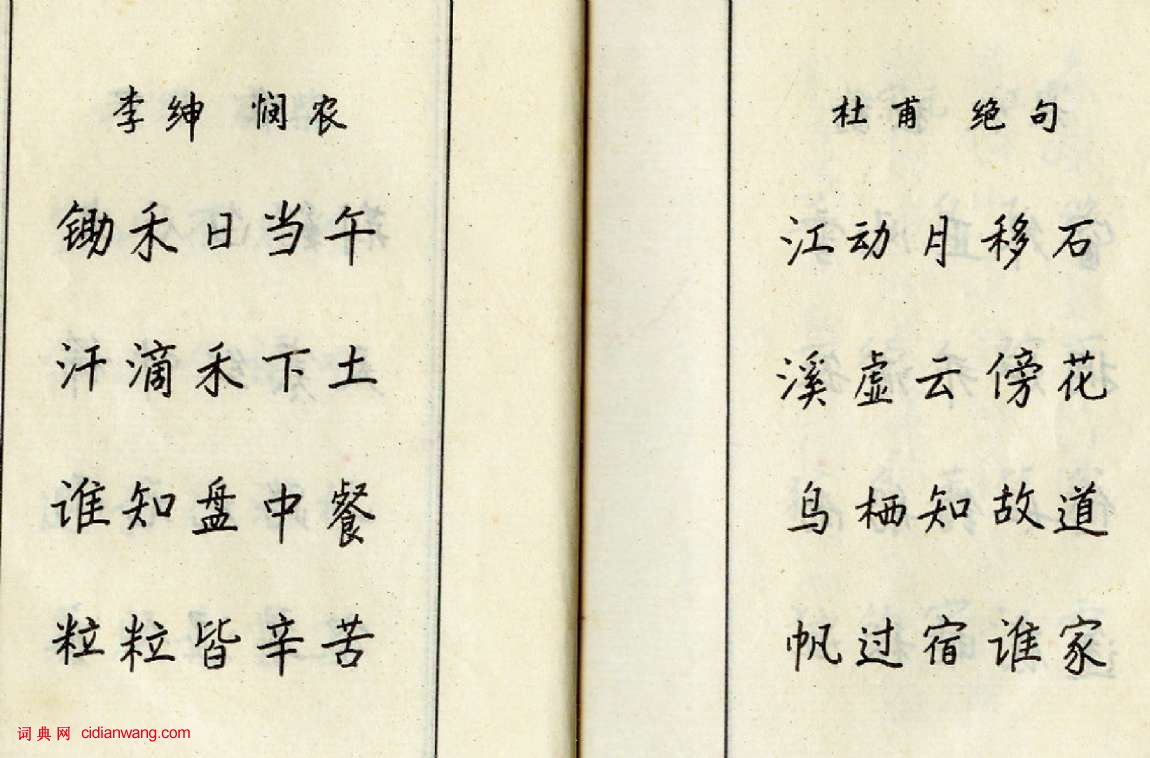 李绅 悯农
锄禾日当午
汗滴禾下土
谁知盘中餐
粒粒皆辛苦
杜甫 绝句
江动月移石
溪虚云傍花
鸟栖知故道
帆过宿谁家
词典网 cidianwang.com